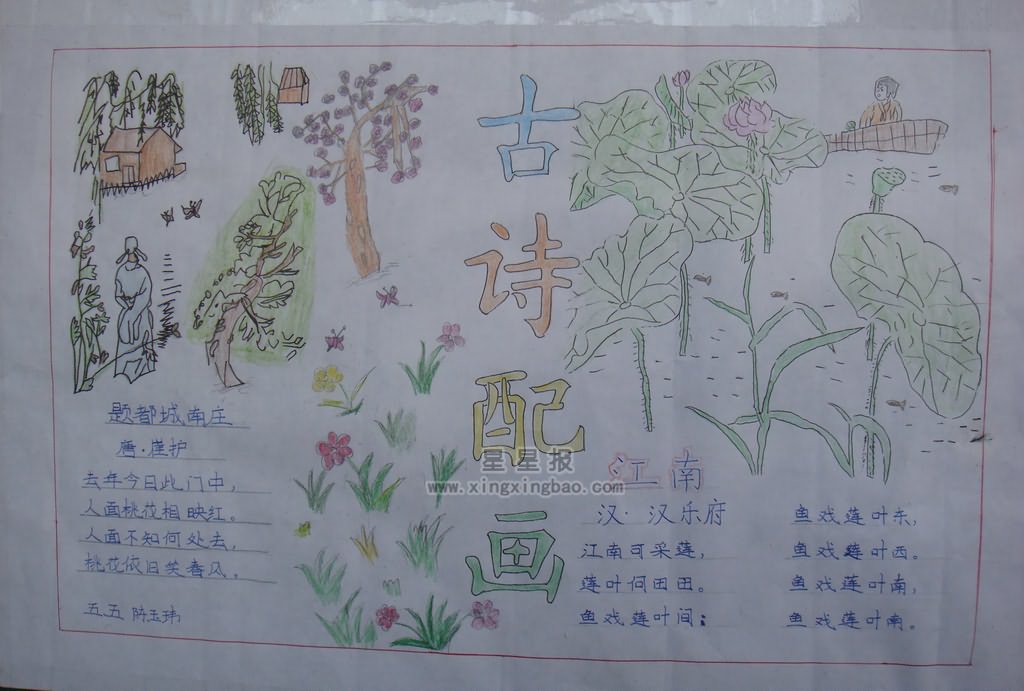 古诗配画
题都城南庄
唐·崖护
去年今日此门中,
人面桃花相映红。
人面不知何处去,
桃花依旧笑春风。
五.五 陈玉玮
星星报
www.xingxingbao.com
江南
汉·汉乐府
江南可采莲,
莲叶何田田。
鱼戏莲叶间;
鱼戏莲叶东,
鱼戏莲叶西。
鱼戏莲叶南,
鱼戏莲叶南。